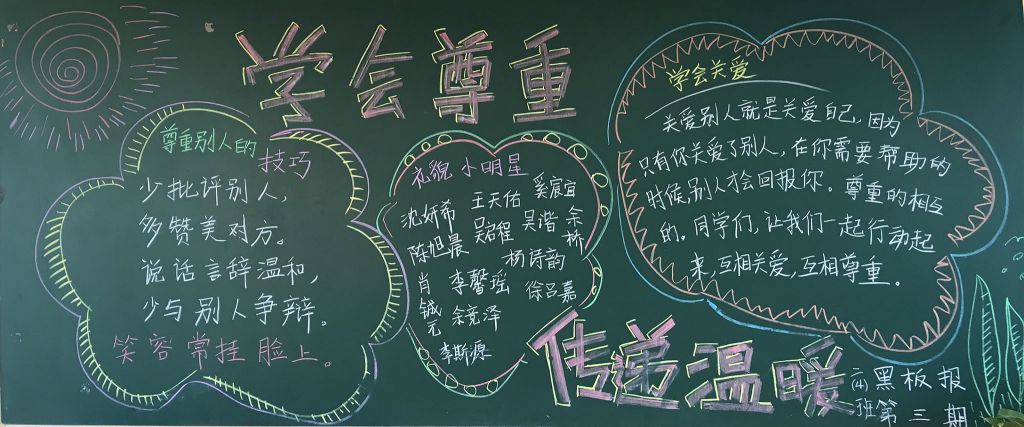 学会尊重
尊重别人的
技巧
少批评别人,
多赞美对方。
说话言辞温和,
少与别人争辩。
笑容常挂脸上。
礼貌小明星
沈妍希 王天佑 奚宸宜
陈旭晨 吴铭程 吴谐 余桥
肖钺元 李馨瑶 杨诗韵
余竞泽 徐吕嘉
李斯源
学会关爱
关爱别人就是关爱自己,因为
只有你关爱了别人,在你需要帮助的
时候,别人才会回报你。尊重的相互
的。同学们,让我们一起行动起
来,互相关爱,互相尊重。
传递温暖
二(4)班
黑板报
第三期